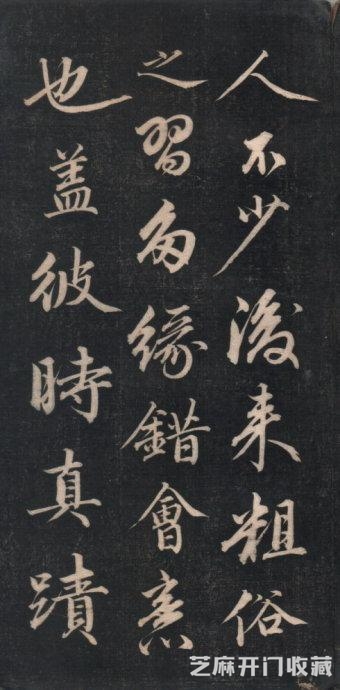 人不少後来粗俗
之習多縁錯會意
也盖彼時真蹟
芝麻开门收藏